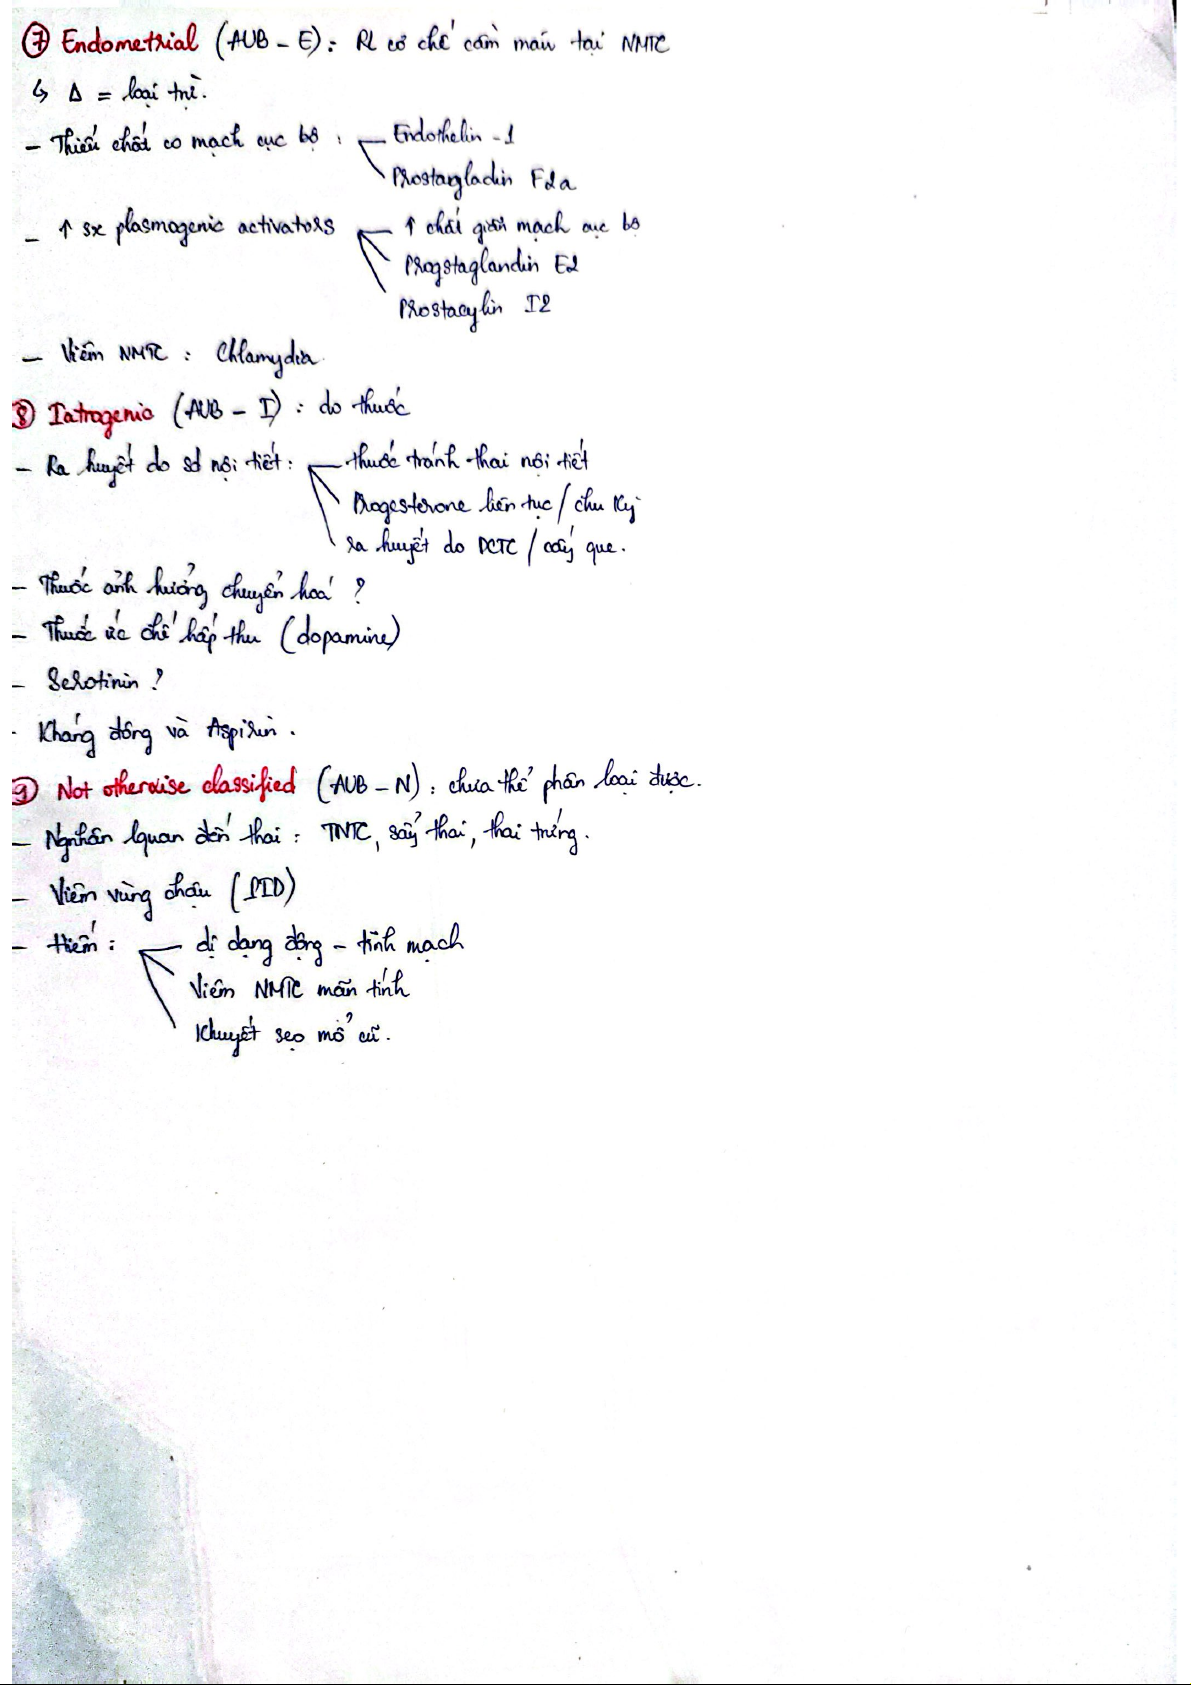 ⑦ Endometrial (AUB - E): RL cơ chế cầm máu tại NMTC
↳ Δ = loại trừ.
- Thiếu chất co mạch cục bộ : Endothelin -1
Prostargladin F2a
- ↑ sx plasmogenic activators ↑ chất giãn mạch cục bộ
Progstaglandin E2
Prostacylin I2
- Viêm NMTC : Chlamydia.
⑧ Iatrogenic (AUB - I) : do thuốc
- Ra huyết do sd nội tiết : thuốc tránh thai nội tiết
Progesterone liên tục / chu kỳ
ra huyết do DCTC / cấy que.
- Thuốc ảnh hưởng chuyển hoá ?
- Thuốc ức chế hấp thu (dopamine)
- Serotinin ?
- Kháng đông và Aspirin.
⑨ Not otherwise classified (AUB - N) : chưa thể phân loại được.
- Ngnhân lquan đến thai : TNTC, sẩy thai, thai trứng.
- Viêm vùng chậu (PID)
- Hiếm : dị dạng động - tĩnh mạch
Viêm NMTC mãn tính
Khuyết sẹo mổ cũ.